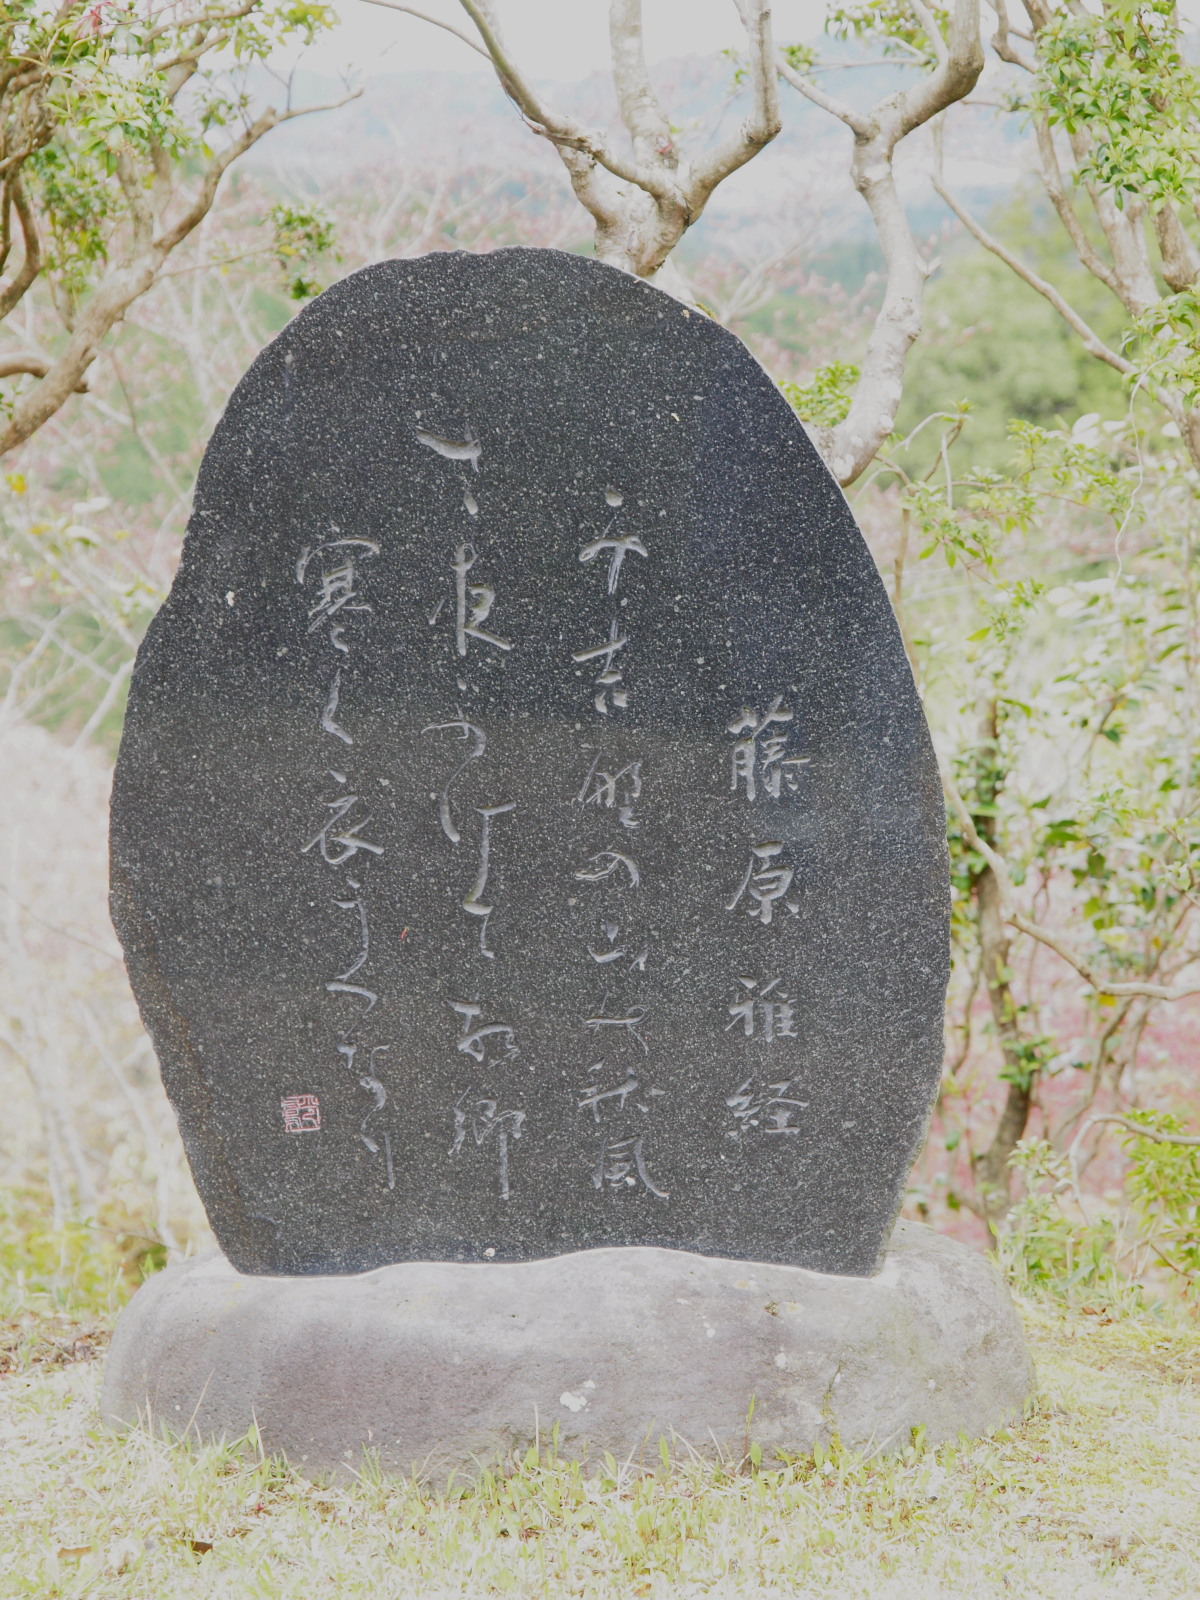 藤原雅経
み吉野の山の秋風
さ夜ふけて故郷
寒く衣うつなり